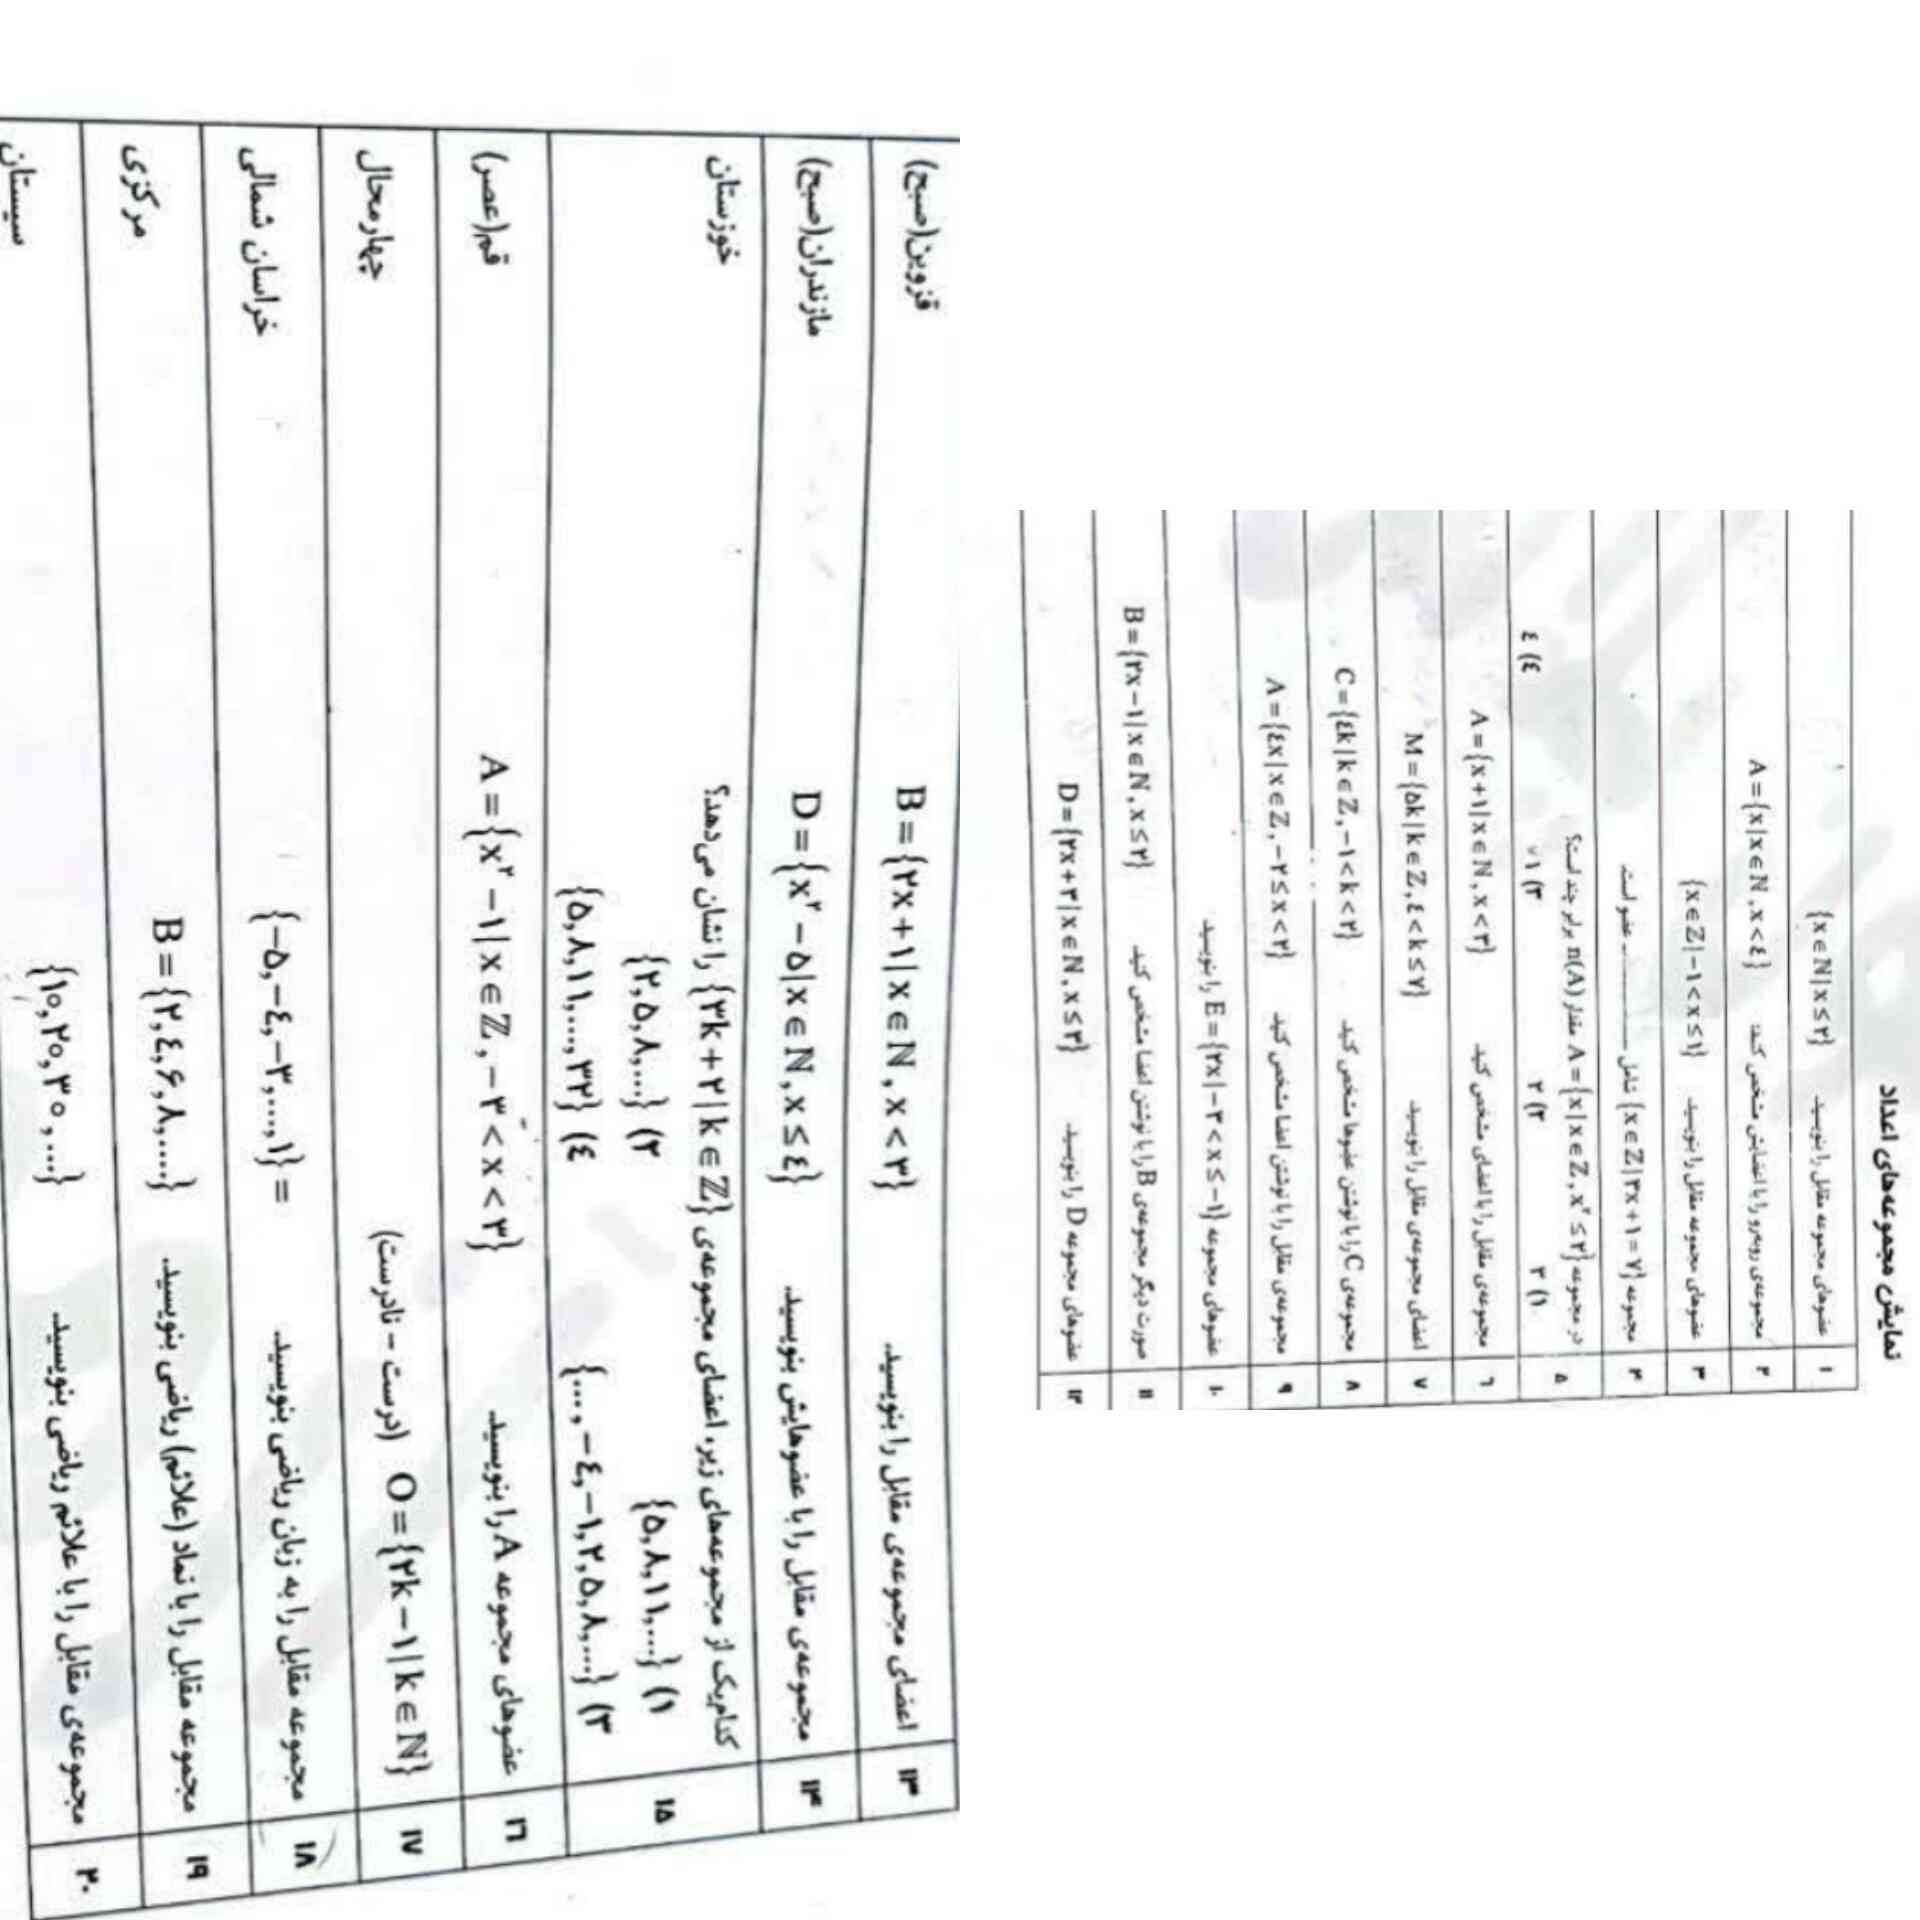 نمایش مجموعه‌های اعداد
۱ عضوهای مجموعه مقابل را بنویسید. {x∈N|x≤۲}
۲ مجموعه‌ی روبه‌رو را با اعضایش مشخص کنید. A={x|x∈N,x<٤}
۳ عضوهای مجموعه مقابل را بنویسید. {x∈Z|-۱<x≤۱}
۴ مجموعه {x∈Z|۲x+۱=۷} شامل ......... عضو است.
۵ در مجموعه A={x|x∈Z,x²≤۲} مقدار n(A) برابر چند است؟
۱) ۳ ۲) ۲ ۳) ۱ ٤) ٤
٦ مجموعه‌ی مقابل را با اعضای مشخص کنید. A={x+۱|x∈N,x<۳}
۷ اعضای مجموعه‌ی مقابل را بنویسید. M={۵k|k∈Z,٤<k≤۷}
۸ مجموعه‌ی C را با نوشتن عضوها مشخص کنید. C={٤k|k∈Z,-۱<k<۲}
۹ مجموعه‌ی مقابل را با نوشتن اعضا مشخص کنید. A={٤x|x∈Z,-۲≤x<۲}
۱۰ عضوهای مجموعه E={۲x|-۳<x≤-۱} را بنویسید.
۱۱ صورت دیگر مجموعه‌ی B را با نوشتن اعضا مشخص کنید. B={۲x-۱|x∈N,x≤۲}
۱۲ عضوهای مجموعه D را بنویسید. D={۲x+۳|x∈N,x≤۳}
۱۳ اعضای مجموعه‌ی مقابل را بنویسید. B={۲x+۱|x∈N,x<۳} قزوین(صبح)
۱۴ مجموعه‌ی مقابل را با عضوهایش بنویسید. D={x²-۵|x∈N,x≤٤} مازندران(صبح)
۱۵ کدام‌یک از مجموعه‌های زیر، اعضای مجموعه‌ی {۳k+۲|k∈Z} را نشان می‌دهد؟ خوزستان
۱) {۵,۸,۱۱,...} ۲) {۲,۵,۸,...}
۳) {...,-٤,-۱,۲,۵,۸,...} ٤) {۵,۸,۱۱,...,۳۲}
۱٦ عضوهای مجموعه A را بنویسید. A={x²-۱|x∈Z,-۳<x<۳} قم(عصر)
۱۷ O={۲k-۱|k∈N} (درست - نادرست) چهارمحال
۱۸ مجموعه مقابل را به زبان ریاضی بنویسید. {-۵,-٤,-۳,...,۱}= خراسان شمالی
۱۹ مجموعه مقابل را با نماد (علائم) ریاضی بنویسید. B={۲,٤,۶,۸,.....} مرکزی
۲۰ مجموعه‌ی مقابل را با علائم ریاضی بنویسید. {۱۰,۲۰,۳۰,...} سیستان